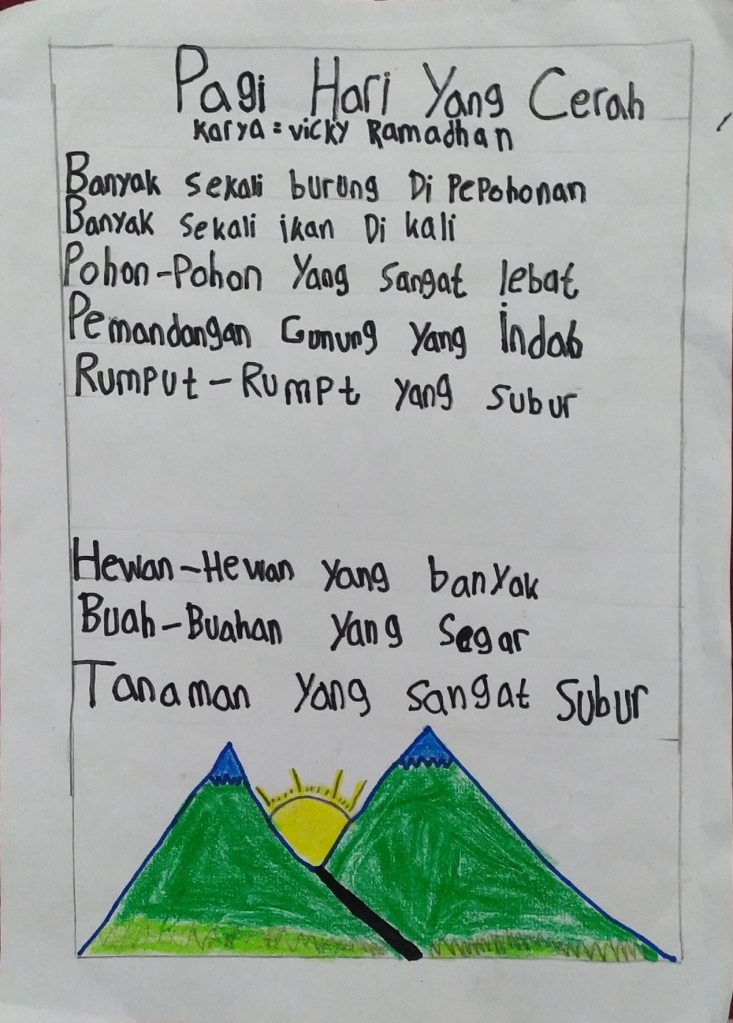 Pagi Hari Yang Cerah
Karya = Vicky Ramadhan
Banyak sekali burung Di Pepohonan
Banyak sekali ikan Di kali
Pohon-Pohon Yang sangat lebat
Pemandangan Gunung Yang indah
Rumput-Rumpt yang subur
Hewan-Hewan yang banyak
Buah-Buahan yang segar
Tanaman Yang sangat subur